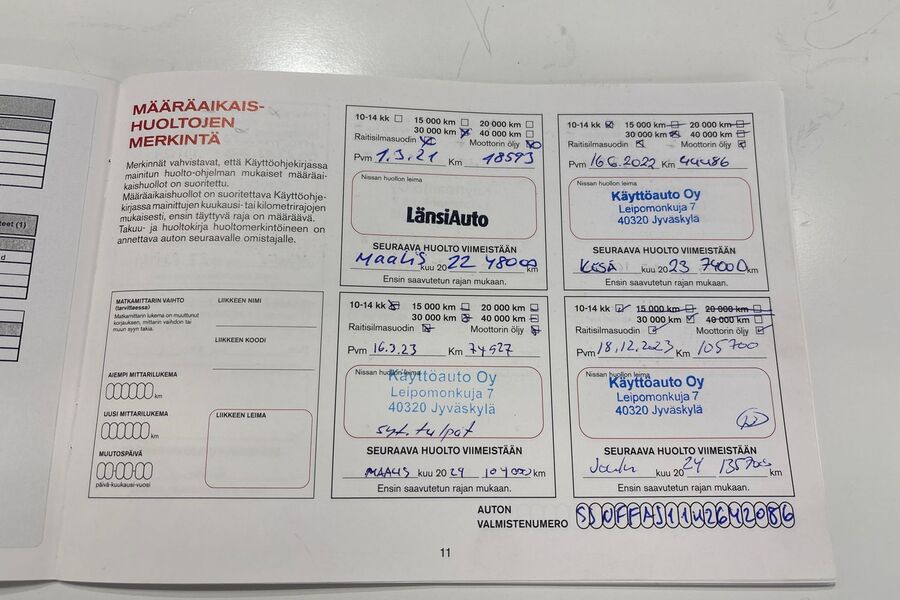 MÄÄRÄAIKAIS-
HUOLTOJEN
MERKINTÄ
Merkinnät vahvistavat, että Käyttöohjekirjassa
mainitun huolto-ohjelman mukaiset määräai-
kaishuollot on suoritettu.
Määräaikaishuollot on suoritettava Käyttöohje-
kirjassa mainittujen kuukausi- tai kilometrirajojen
mukaisesti, ensin täyttyvä raja on määräävä.
Takuu- ja huoltokirja huoltomerkintöineen on
annettava auton seuraavalle omistajalle.
10-14 kk 15 000 km 20 000 km
30 000 km 40 000 km
Raitisilmasuodin Moottorin öljy
Pvm 1.3.21 Km 18593
Nissan huollon leima
LänsiAuto
SEURAAVA HUOLTO VIIMEISTÄÄN
Maalis kuu 20 22 48000 km
Ensin saavutetun rajan mukaan.
10-14 kk 15 000 km 20 000 km
30 000 km 40 000 km
Raitisilmasuodin Moottorin öljy
Pvm 16.6.2022 Km 44486
Nissan huollon leima
Käyttöauto Oy
Leipomonkuja 7
40320 Jyväskylä
SEURAAVA HUOLTO VIIMEISTÄÄN
KESÄ kuu 20 23 74000 km
Ensin saavutetun rajan mukaan.
MATKAMITTARIN VAIHTO
(tarvittaessa)
Matkamittarin lukema on muuttunut
korjauksen, mittarin vaihdon tai
muun syyn takia.
LIIKKEEN NIMI
LIIKKEEN KOODI
AIEMPI MITTARILUKEMA
km
UUSI MITTARILUKEMA
km
MUUTOSPÄIVÄ
päivä-kuukausi-vuosi
LIIKKEEN LEIMA
10-14 kk 15 000 km 20 000 km
30 000 km 40 000 km
Raitisilmasuodin Moottorin öljy
Pvm 16.3.23 Km 74927
Nissan huollon leima
Käyttöauto Oy
Leipomonkuja 7
40320 Jyväskylä
syt. tulpat
SEURAAVA HUOLTO VIIMEISTÄÄN
MAALIS kuu 20 24 104000 km
Ensin saavutetun rajan mukaan.
10-14 kk 15 000 km 20 000 km
30 000 km 40 000 km
Raitisilmasuodin Moottorin öljy
Pvm 18.12.2023 Km 105700
Nissan huollon leima
Käyttöauto Oy
Leipomonkuja 7
40320 Jyväskylä
SEURAAVA HUOLTO VIIMEISTÄÄN
Joulu kuu 20 24 135700 km
Ensin saavutetun rajan mukaan.
AUTON
VALMISTENUMERO SJNFFAJ11U2642086
11
teet (1)